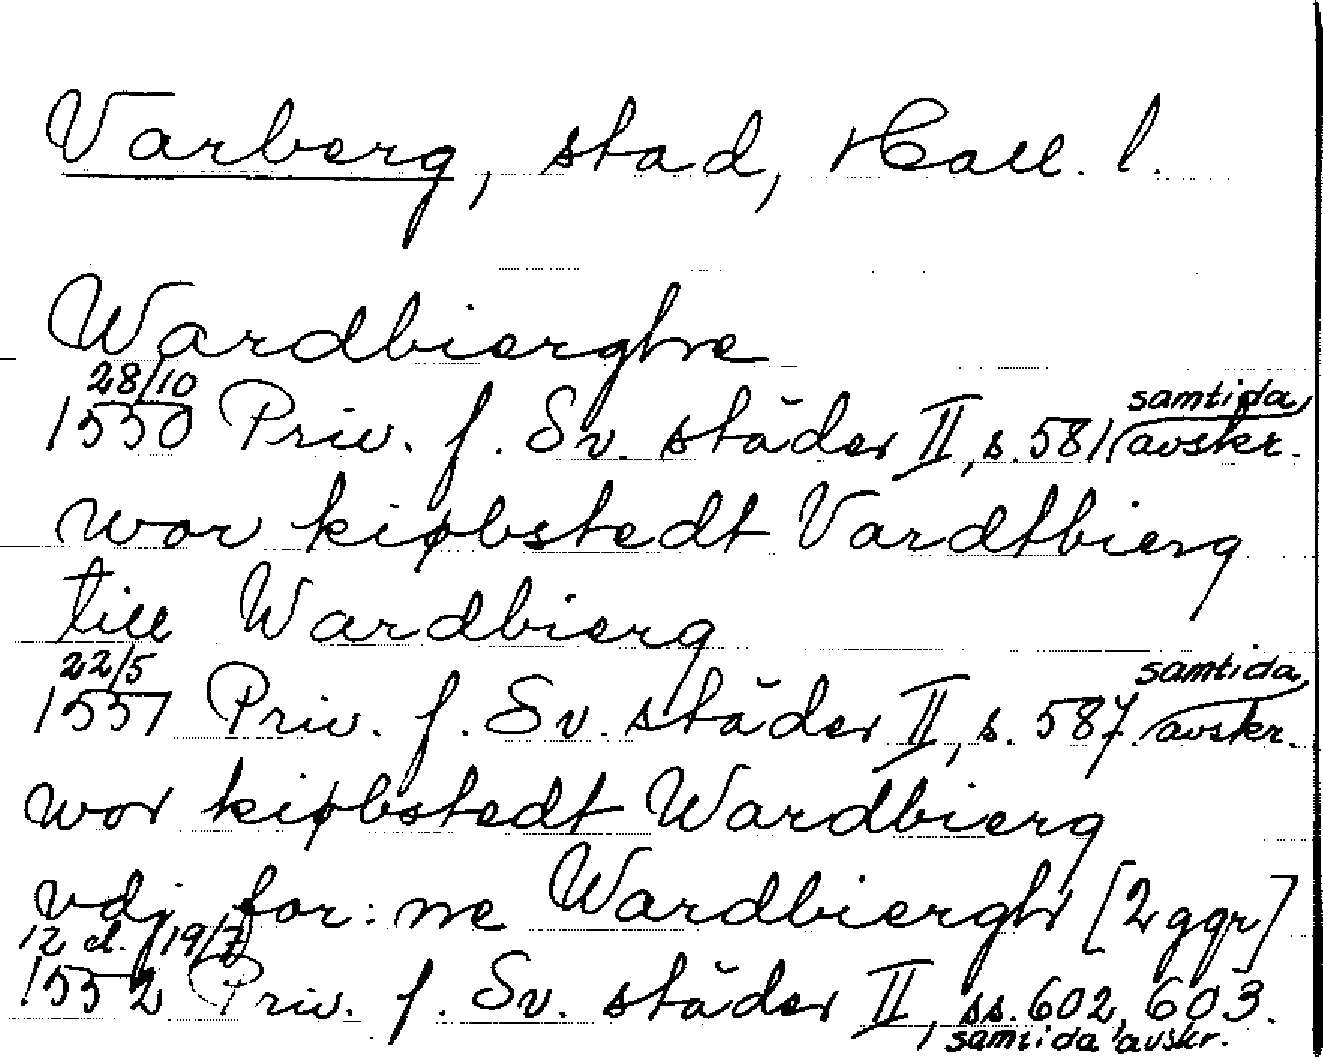 Varberg, stad, Hall. l.
Wardbierghe
28/10
1550 Priv. f. Sv. städer II, s. 581 samtida avskr.
wor kiøbstedt Vardtbierg
till Wardbierg
22/5
1551 Priv. f. Sv. städer II, s. 587 samtida avskr.
wor kiøbstedt Wardbierg
vdj for:ne Wardbiergh [2 ggr]
12 el. 19/7
1552 Priv. f. Sv. städer II, ss. 602, 603.
samtida avskr.